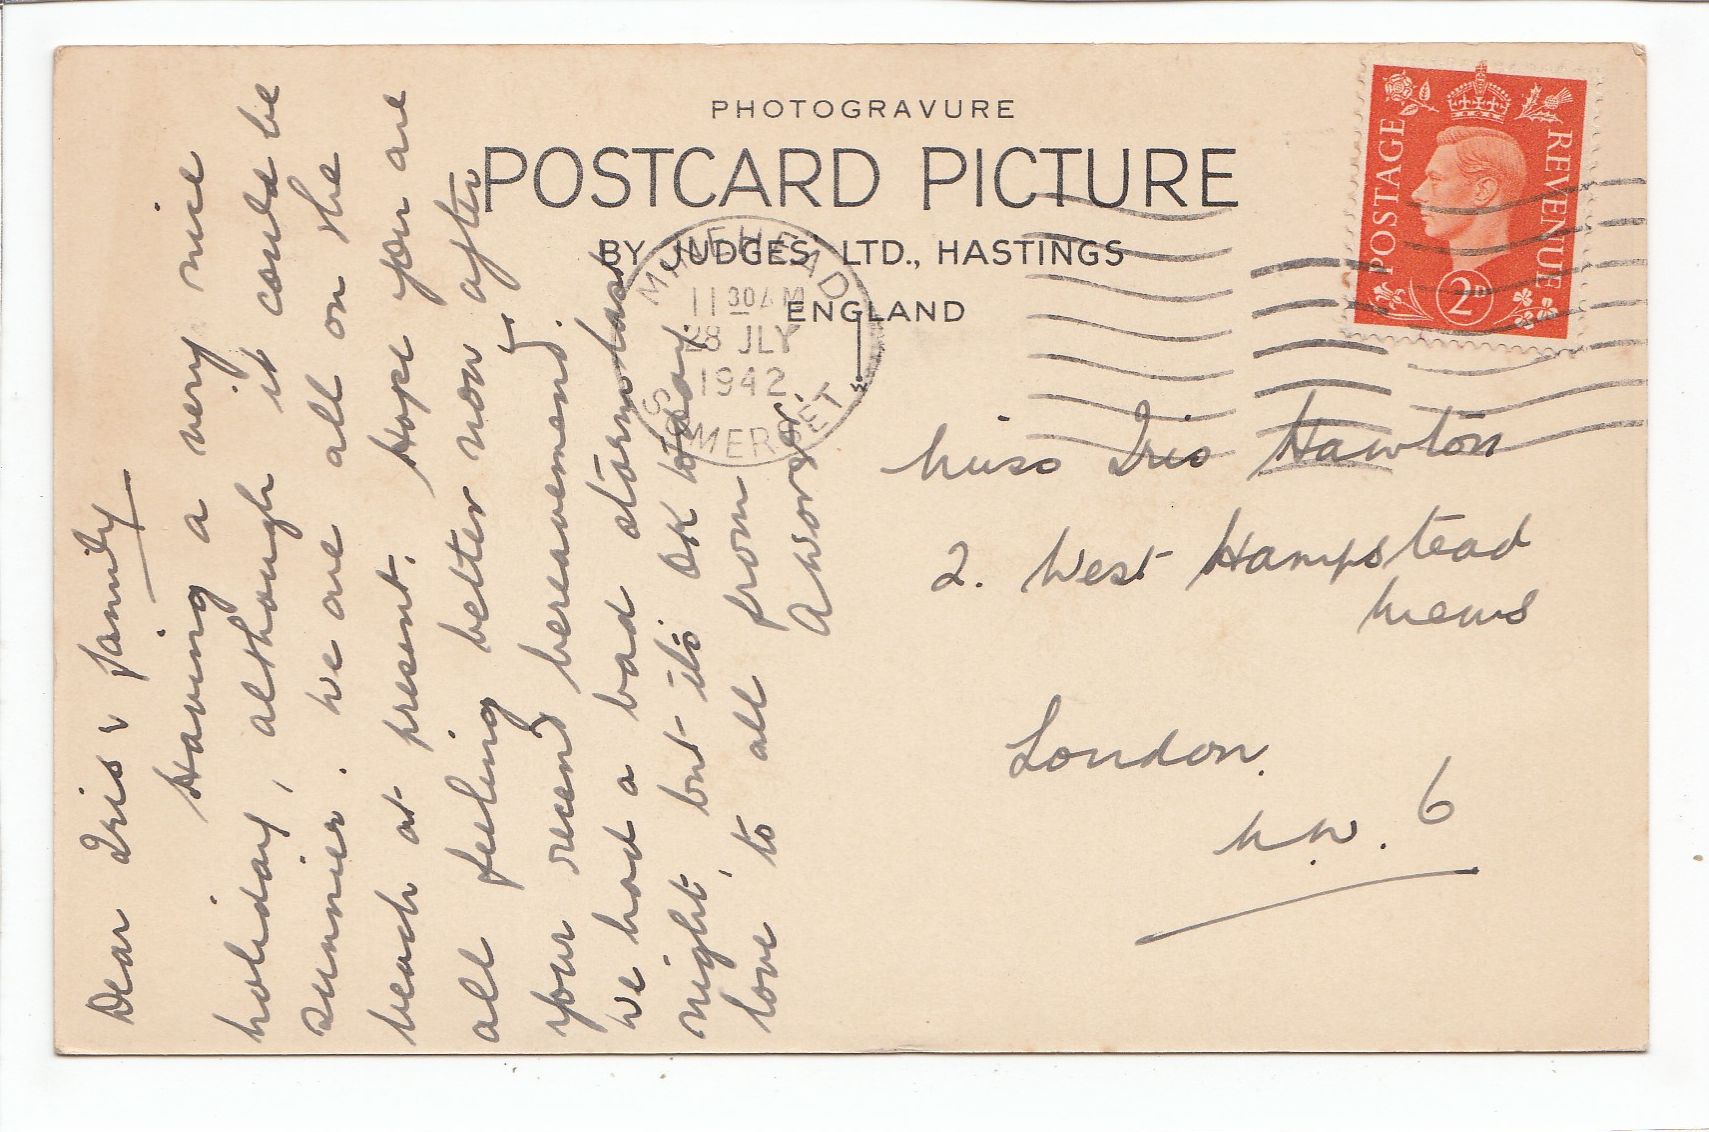 PHOTOGRAVURE
POSTCARD PICTURE
BY JUDGES' LTD., HASTINGS
ENGLAND
MINEHEAD
11 30 AM
28 JLY
1942
SOMERSET
POSTAGE
REVENUE
2D
Dear Iris & family
Having a very nice
holiday, although it could be
sunnier. We are all on the
beach at present. Hope you are
all feeling better now after
your recent bereavement.
We had a bad storm last
night, but it's OK today.
love to all from
A Worser.
Miss Iris Hawton
2. West Hampstead
Mews
London.
N.W. 6